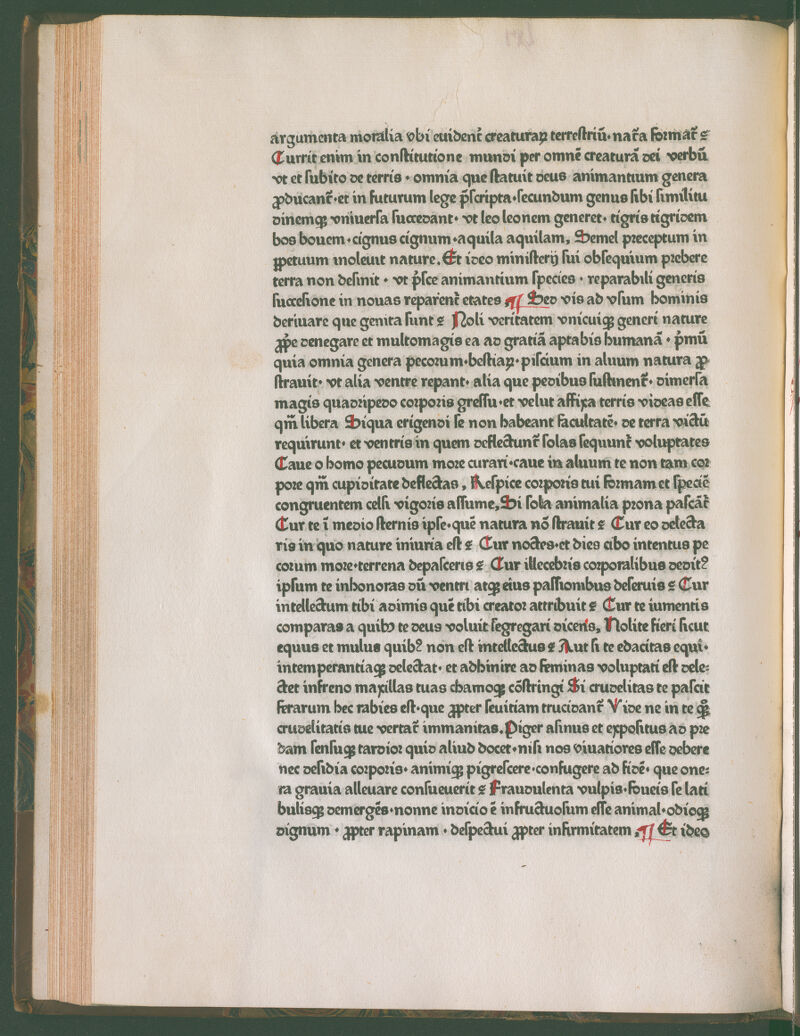 argumenta moralia vbi euident᷑ creaturaꝝ terreſtriū·nat᷑a format᷑ ꝛ
Currit enim in conſtitutione mundi per omnē creaturā dei verbū
vt et ſubito de terris · omnia que ſtatuit deus animantium genera
ꝓducant᷑·et in futurum lege p̄ſcripta·ſecundum genus ſibi ſimilitu
dinemqꝫ vniuerſa ſuccedant· vt leo leonem generet· tigris tigridem
bos bouem·cignus cignum·aquila aquilam, Semel preceptum in
ꝑpetuum inoleuit nature. Et ideo miniſterij ſui obſequium prebere
terra non deſinit · vt p̄ſce animantium ſpecies · reparabili generis
ſucceſione in nouas reparent᷑ etates ¶ Sed vis ad vſum hominis
deriuare que genita ſunt ꝛ Noli veritatem vnicuiqꝫ generi nature
ꝓp̄e denegare et multomagis ea ad gratiā aptabis humanā · p̄mū
quia omnia genera pecorum·beſtiaꝝ·piſcium in aluum natura ꝓ
ſtrauit· vt alia ventre repant· alia que pedibus ſuſtinent᷑· dimerſa
magis quadripedo corporis greſſu·et velut affixa terris videas eſſe
qm̄ libera Siqua erigendi ſe non habeant facultatē· de terra victū
requirunt· et ventris in quem deflectunt᷑ ſolas ſequunt᷑ voluptates
Caue o homo pecudum more curari·caue in aluum te non tam cor
pore qm̄ cupiditate deflectas, Reſpice corporis tui formam et ſpeciē
congruentem celſi vigoris aſſume, Si ſola animalia prona paſcāt᷑
Cur te ī medio ſternis ipſe·quē natura nō ſtrauit ꝛ Cur eo delecta
ris in quo nature iniuria eſt ꝛ Cur noctes·et dies cibo intentus pe
corum more·terrena depaſceris ꝛ Cur illecebris corporalibus dedit?
ipſum te inhonoras dū ventri atqꝫ eius paſſionibus deſeruis ꝛ Cur
intellectum tibi adimis quē tibi creator attribuit ꝛ Cur te iumentis
comparas a quibꝰ te deus voluit ſegregari dicens, Nolite fieri ſicut
equus et mulus quib? non eſt intellectus ꝛ Aut ſi te edacitas equi·
intemperantiaqꝫ delectat· et adhinire ad feminas voluptati eſt dele⸗
ctet infreno maxillas tuas chamoqꝫ cōſtringi Si crudelitas te paſcit
ferarum hec rabies eſt·que ꝓpter ſeuitiam trucidant᷑ Vide ne in te qꝫ̄
crudelitatis tue vertat᷑ immanitas. Piger aſinus et expoſitus ad pre
dam ſenſuqꝫ tardior quid aliud docet·niſi nos viuatiores eſſe debere
nec deſidia corporis· animiqꝫ pigreſcere·confugere ad fidē· que one⸗
ra grauia alleuare conſueuerit ꝛ Fraudulenta vulpis·foueis ſe lati
bulisqꝫ demergēs·nonne indicio ē infructuoſum eſſe animal·odioqꝫ
dignum · ꝓpter rapinam · deſpectui ꝓpter infirmitatem, ¶ Et ideo